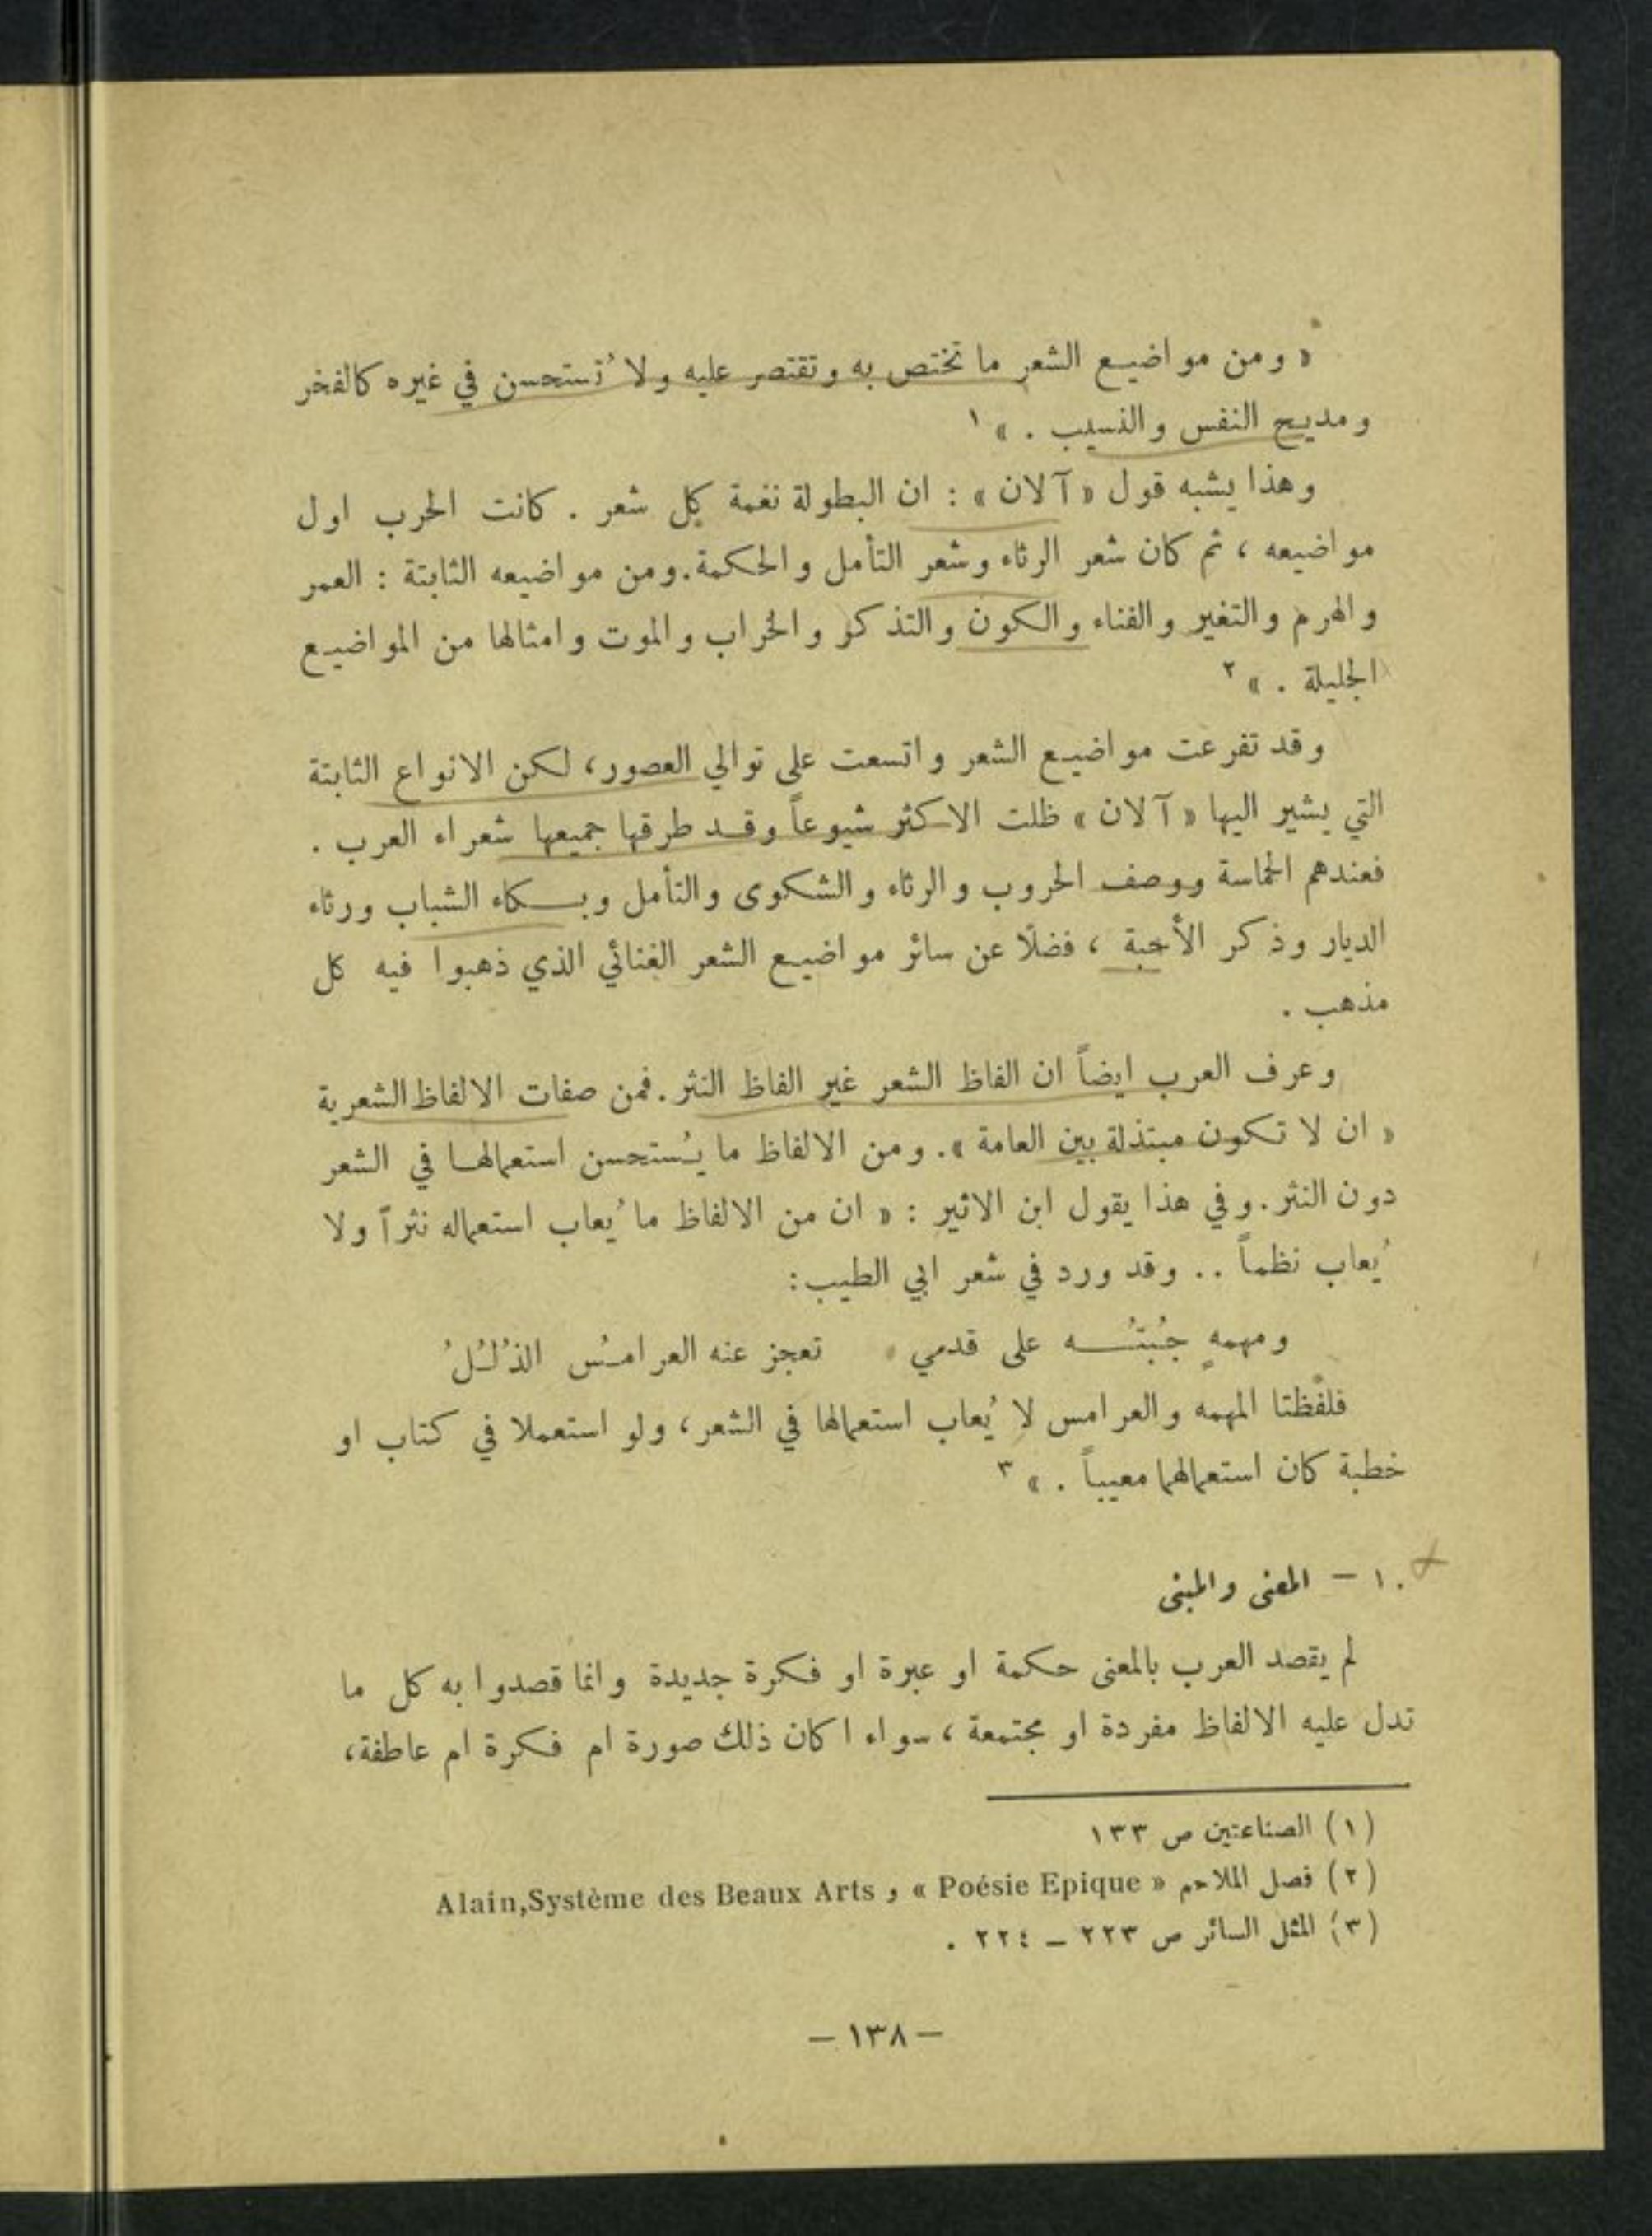 « ومن مواضيع الشعر ما تختص به وتقتصر عليه ولا تُستحسن في غيره كالفخر
ومديح النفس والنسيب . » ١
وهذا يشبه قول « آلان » : ان البطولة نغمة كل شعر . كانت الحرب اول
مواضيعه ، ثم كان شعر الرثاء وشعر التأمل والحكمة . ومن مواضيعه الثابتة : العمر
والهرم والتغير والفناء والكون والتذكر والخراب والموت وامثالها من المواضيع
الجليلة . » ٢
وقد تفرعت مواضيع الشعر واتسعت على توالي العصور ، لكن الانواع الثابتة
التي يشير اليها « آلان » ظلت الاكثر شيوعاً وقد طرقها جميعها شعراء العرب .
فعندهم الحماسة ووصف الحروب والرثاء والشكوى والتأمل وبكاء الشباب ورثاء
الديار وذكر الأحبة ، فضلًا عن سائر مواضيع الشعر الغنائي الذي ذهبوا فيه كل
مذهب .
وعرف العرب ايضاً ان الفاظ الشعر غير الفاظ النثر . فمن صفات الالفاظ الشعرية
« ان لا تكون مبتذلة بين العامة » . ومن الالفاظ ما يُستحسن استعمالها في الشعر
دون النثر . وفي هذا يقول ابن الاثير : « ان من الالفاظ ما يُعاب استعماله نثراً ولا
يُعاب نظماً .. وقد ورد في شعر ابي الطيب :
ومهمهٍ جُبتُه على قدمي تعجز عنه العرامسُ الذُلُلُ
فلفظتا المهمه والعرامس لا يُعاب استعمالها في الشعر ، ولو استعملا في كتاب او
خطبة كان استعمالهما معيباً . » ٣
١٠ – المعنى والمبنى
لم يقصد العرب بالمعنى حكمة او عبرة او فكرة جديدة وانما قصدوا به كل ما
تدل عليه الالفاظ مفردة او مجتمعة ، سواء اكان ذلك صورة ام فكرة ام عاطفة ،
(١) الصناعتين ص ١٣٣
(٢) فصل الملاحم « Poésie Epique » و Alain,Système des Beaux Arts
(٣) المثل السائر ص ٢٢٣ – ٢٢٤ .
– ١٣٨ –